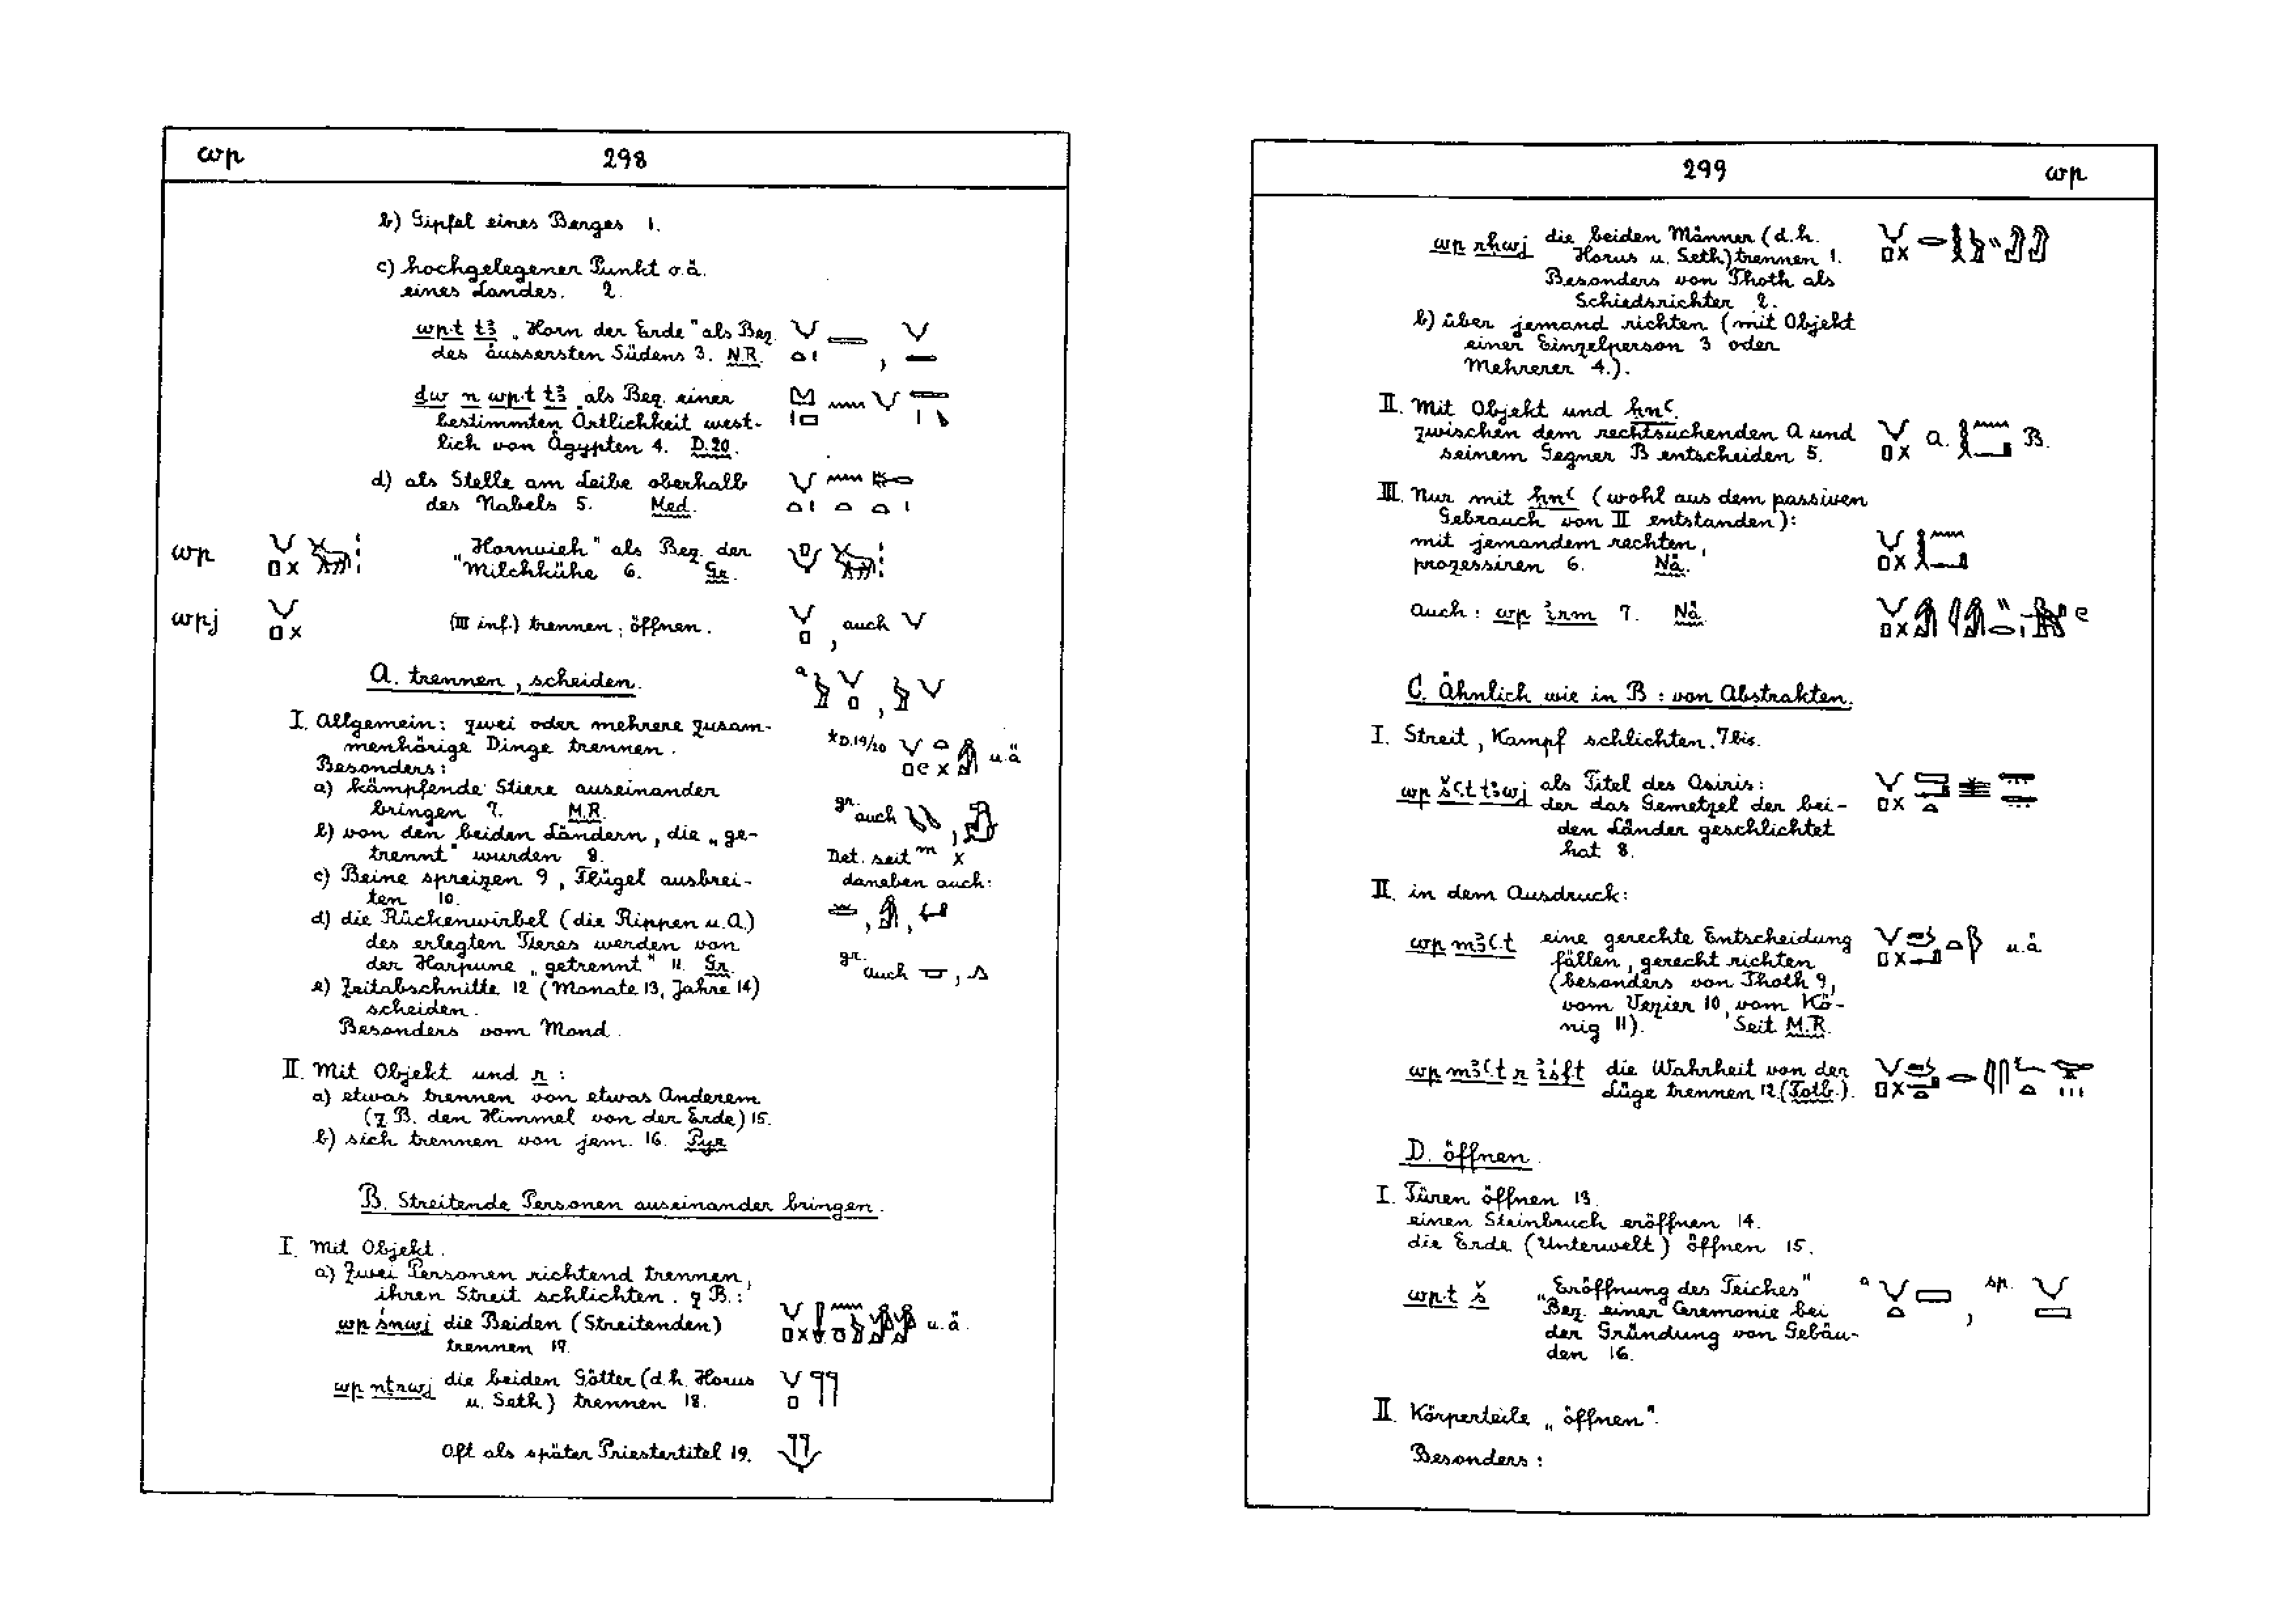 wp 298
b) Gipfel eines Berges 1.
c) hochgelegener Punkt o.ä.
eines Landes. 2.
wp.t tꜣ „Horn der Erde" als Bez.
des äussersten Südens 3. N.R.
ḏw n wp.t tꜣ als Bez. einer
bestimmten Örtlichkeit west-
lich von Ägypten 4. D.20.
d) als Stelle am Leibe oberhalb
des Nabels 5. Med.
wp „Hornvieh" als Bez. der
Milchkühe 6. Gr.
wpj (III inf.) trennen; öffnen. , auch
A. trennen, scheiden.
a
I. Allgemein: zwei oder mehrere zusam-
menhörige Dinge trennen.
*D.19/20 u.ä
Besonders:
a) kämpfende Stiere auseinander
bringen 7. M.R.
gr. auch
b) von den beiden Ländern, die „ge-
trennt" wurden 8.
Det. seit m x
c) Beine spreizen 9, Flügel ausbrei-
ten 10.
daneben auch:
d) die Rückenwirbel (die Rippen u.A.)
des erlegten Tieres werden von
der Harpune „getrennt" 11. Gr.
gr. auch
e) Zeitabschnitte 12 (Monate 13, Jahre 14)
scheiden.
Besonders vom Mond.
II. Mit Objekt und r:
a) etwas trennen von etwas Anderem
(z.B. den Himmel von der Erde) 15.
b) sich trennen von jem. 16. Pyr
B. Streitende Personen auseinander bringen.
I. Mit Objekt.
a) Zwei Personen richtend trennen,
ihren Streit schlichten. z.B.:
wp śnwj die Beiden (Streitenden)
trennen 17. u.ä.
wp nṯrwj die beiden Götter (d.h. Horus
u. Seth) trennen 18.
Oft als später Priestertitel 19.
299 wp
wp rḥwj die beiden Männer (d.h.
Horus u. Seth) trennen 1.
Besonders von Thoth als
Schiedsrichter 2.
b) über jemand richten (mit Objekt
einer Einzelperson 3 oder
Mehrerer 4.).
II. Mit Objekt und ḥnꜥ.
zwischen dem rechtsuchenden A und
seinem Gegner B entscheiden 5.
A. B.
III. Nur mit ḥnꜥ (wohl aus dem passiven
Gebrauch von II entstanden):
mit jemandem rechten,
prozessiren 6. Nä.
Auch: wp irm 7. Nä.
C. Ähnlich wie in B: von Abstrakten.
I. Streit, Kampf schlichten. 7bis.
wp šꜥ.t tꜣwj als Titel des Osiris:
der das Gemetzel der bei-
den Länder geschlichtet
hat 8.
II. in dem Ausdruck:
wp mꜣꜥ.t eine gerechte Entscheidung
fällen, gerecht richten
(besonders von Thoth 9,
vom Vezier 10, vom Kö-
nig 11). Seit M.R.
u.ä
wp mꜣꜥ.t r iśft die Wahrheit von der
Lüge trennen 12. (Totb.).
D. öffnen.
I. Türen öffnen 13.
einen Steinbruch eröffnen 14.
die Erde (Unterwelt) öffnen 15.
wp.t š „Eröffnung des Teiches"
Bez. einer Ceremonie bei
der Gründung von Gebäu-
den 16.
a , sp.
II. Körperteile „öffnen".
Besonders: